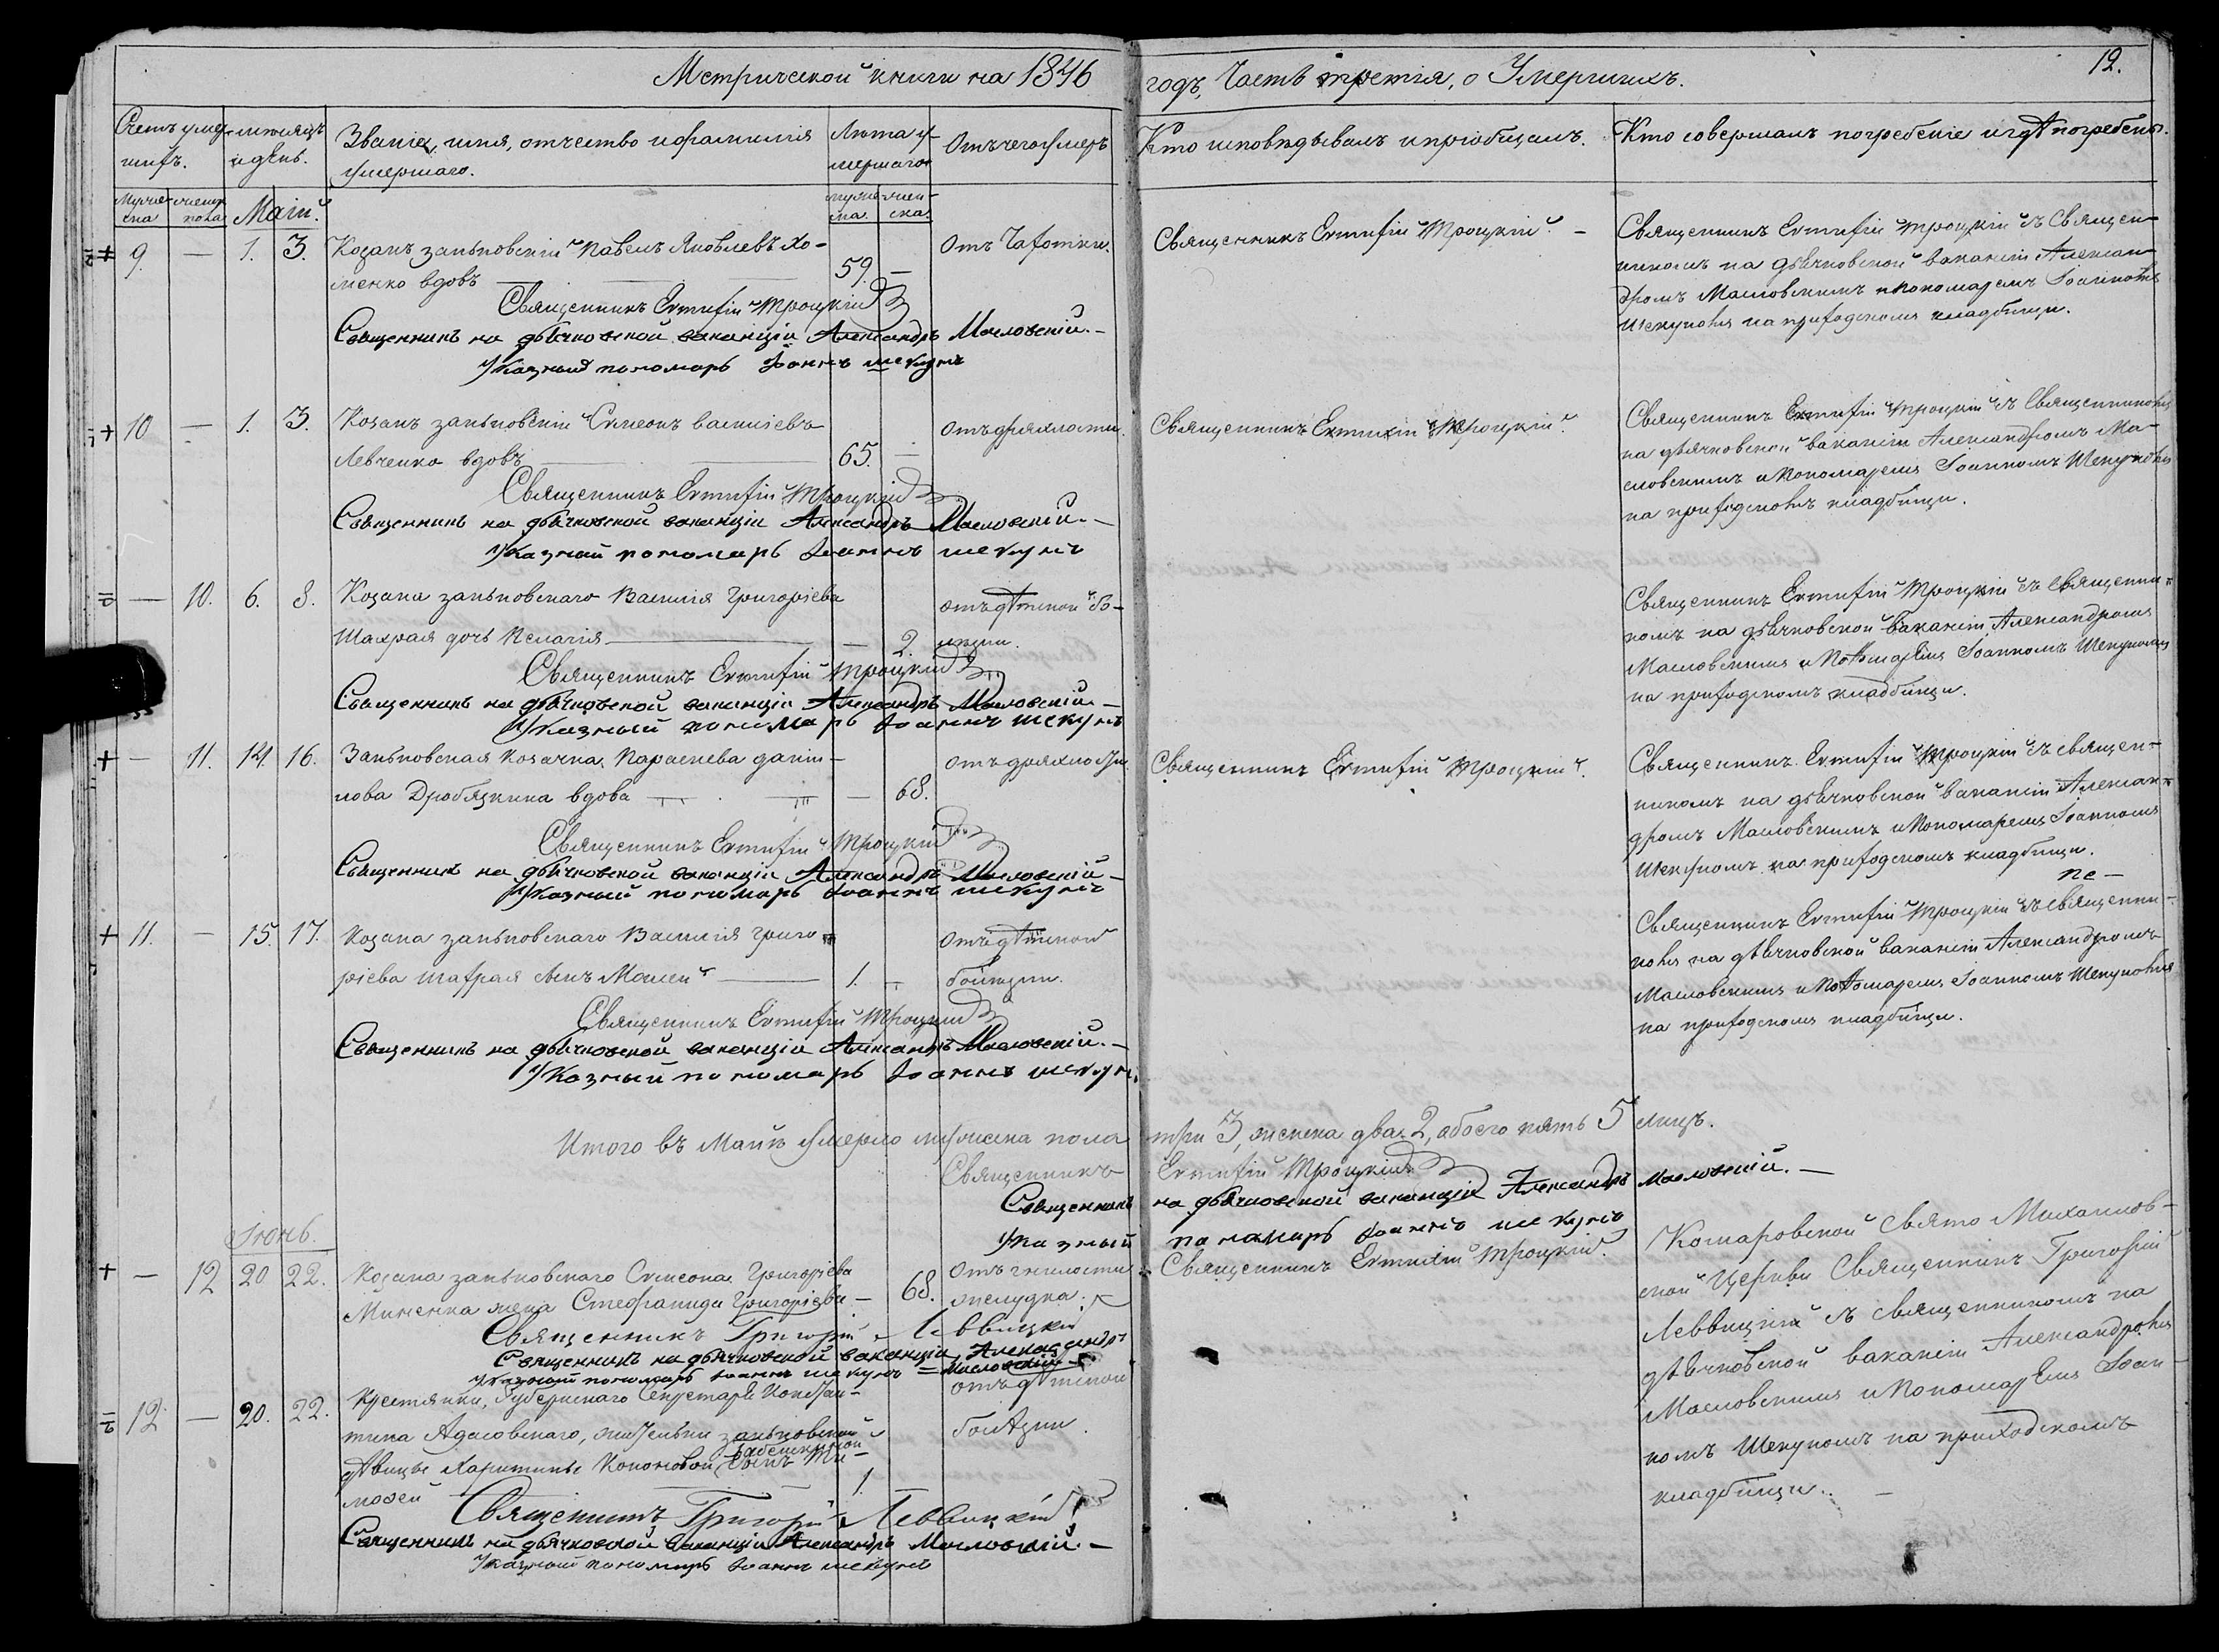 Метрической книги на 1846 годъ, Часть третія, о Умершихъ. 12.
Счетъ умер-шихъ.
мѣсяцъ и день.
Званіе, имя, отчество и фамилія умершаго.
Лѣта умершаго
Отъ чего умеръ
Кто исповѣдывалъ и пріобщалъ.
Кто совершалъ погребеніе и гдѣ погребены.
Маій.
9. — 1. 3. Козакъ заньковскій Павелъ Яковлевъ Хо-
менко вдовъ 59. —
Отъ Чахотки.
Священникъ Евтихій Троцкій. —
Священникъ Евтихій Троцкій съ Священ-
никомъ на дьячковской ваканіи Алексан-
дромъ Масловскимъ и Пономаремъ Іоанномъ
Шекуномъ на приходскомъ кладбищи.
Священникъ Евтихій Троцкій
Священникъ на дьячковской ваканціи Александръ Масловскій. —
Указный пономарь Іоаннъ шекунъ
10 — 1. 3. Козакъ заньковскій Симеонъ Василіевъ
Левченко вдовъ 65. —
отъ дряхлости.
Священникъ Евтихій Троцкій.
Священникъ Евтихій Троцкій съ Священникомъ
на дьячковской ваканіи Александромъ Ма-
словскимъ и Пономаремъ Іоанномъ Шекуномъ
на приходскомъ кладбищи.
Священникъ Евтихій Троцкій
Священникъ на дьячковской ваканціи Александръ Масловскій. —
Указный пономарь Іоаннъ шекунъ
— 10. 6. 8. Козака заньковскаго Василія Григоріева
Шахрая дочь Пелагія — 2.
отъ дѣтской бо-
лѣзни.
Священникъ Евтихій Троцкій съ Священни-
комъ на дьячковской ваканіи Александромъ
Масловскимъ и Пономаремъ Іоанномъ Шекуномъ
на приходскомъ кладбищи.
Священникъ Евтихій Троцкій
Священникъ на дьячковской ваканціи Александръ Масловскій. —
Указный пономарь Іоаннъ шекунъ
— 11. 14. 16. Заньковская козачка Параскева Даніи-
лова Дробязкина вдова — 68.
отъ дряхлости.
Священникъ Евтихій Троцкій.
Священникъ Евтихій Троцкій съ священ-
никомъ на дьячковской ваканіи Алексан-
дромъ Масловскимъ и Пономаремъ Іоанномъ
Шекуномъ на приходскомъ кладбищи.
Священникъ Евтихій Троцкій
Священникъ на дьячковской ваканціи Александръ Масловскій —
Указный пономарь Іоаннъ шекунъ
11. — 15. 17. Козака заньковскаго Василія Григо-
ріева Шахрая сынъ 1. —
отъ дѣтской
болѣзни.
Священникъ Евтихій Троцкій съ священни-
комъ на дьячковской ваканіи Александромъ
Масловскимъ и Пономаремъ Іоанномъ Шекуномъ
на приходскомъ кладбищи.
Священникъ Евтихій Троцкій
Священникъ на дьячковской ваканціи Александръ Масловскій. —
Указный пономарь Іоаннъ шекунъ
Итого въ Маіи умерло мужеска пола три 3, женска два 2, обоего пять 5 лицъ.
Священникъ Евтихій Троцкій
Священникъ на дьячковской ваканціи Александръ Масловскій. —
Указный пономарь Іоаннъ шекунъ
Іюнь.
— 12 20. 22. Козака заньковскаго Симеона Григоріева
Миненка жена Стефанида Григоріева — 68.
отъ гнилости
желудка.
Священникъ Евтихій Троцкій.
Комаровской Свято Михаилов-
ской Церкви Священникъ Григорій
Леввицкій съ священникомъ на
дьячковской ваканіи Александромъ
Масловскимъ и Пономаремъ Іоан-
номъ Шекуномъ на приходскомъ
кладбищи. —
Священникъ Григорій Леввицкій
Священникъ на дьячковской ваканціи Александръ
Масловскій
Указный пономарь Іоаннъ шекунъ
12. — 20. 22. Крестянки, Губернскаго Секретаря Констан-
тина Адасовскаго, жительки заньковской
дѣвицы Харитины Кононовой сынъ Ти-
мофей 1.
отъ дѣтской
болѣзни.
Священникъ Григорій Леввицкій
Священникъ на дьячковской ваканціи Александръ Масловскій. —
Указный пономарь Іоаннъ шекунъ